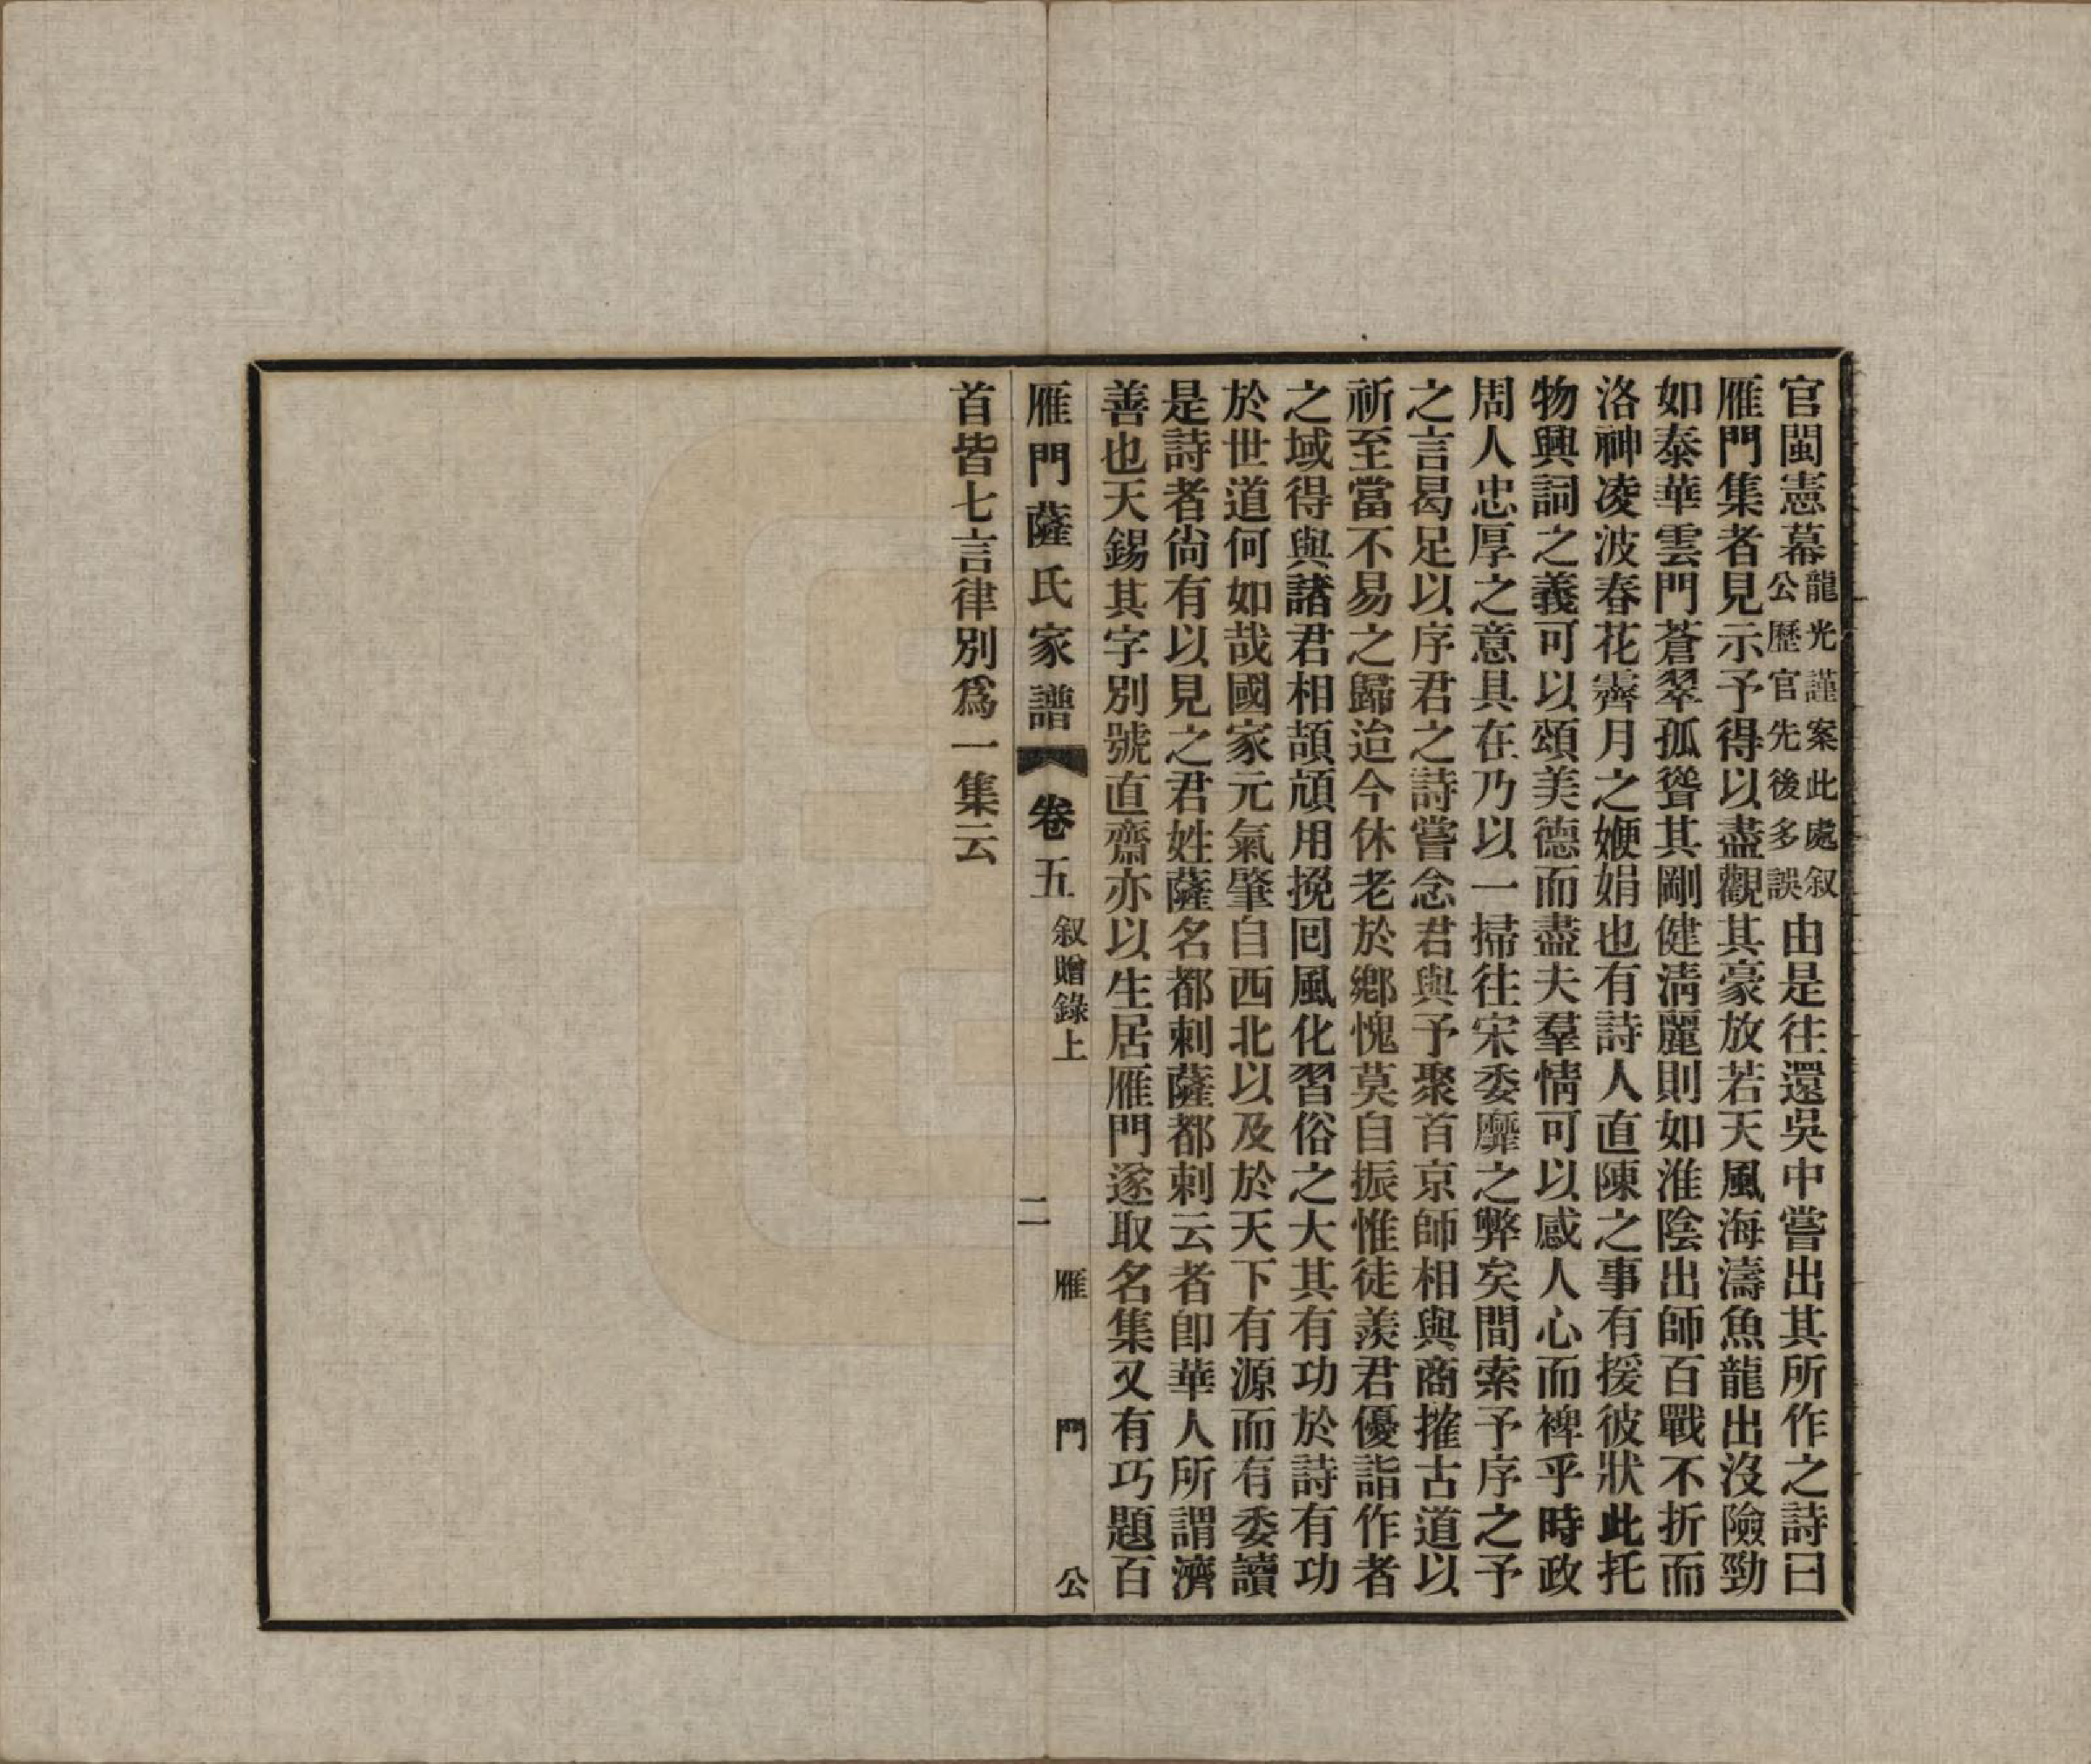 官閩憲幕龍光謹案此處叙公歷官先後多誤由是往還吳中嘗出其所作之詩曰
雁門集者見示予得以盡觀其豪放若天風海濤魚龍出沒險勁
如泰華雲門蒼翠孤聳其剛健淸麗則如淮陰出師百戰不折而
洛神凌波春花霽月之㛹娟也有詩人直陳之事有援彼狀此托
物興詞之義可以頌美德而盡夫羣情可以感人心而裨乎時政
周人忠厚之意具在乃以一掃往宋委靡之弊矣間索予序之予
之言曷足以序君之詩嘗念君與予聚首京師相與商搉古道以
祈至當不易之歸迨今休老於鄕愧莫自振惟徒羨君優詣作者
之域得與諸君相頡頏用挽回風化習俗之大其有功於詩有功
於世道何如哉國家元氣肇自西北以及於天下有源而有委讀
是詩者尙有以見之君姓薩名都剌薩都剌云者卽華人所謂濟
善也天錫其字別號直齋亦以生居雁門遂取名集又有巧題百
雁門薩氏家譜 卷五 叙贈錄上 二 雁門公
首皆七言律別爲一集云